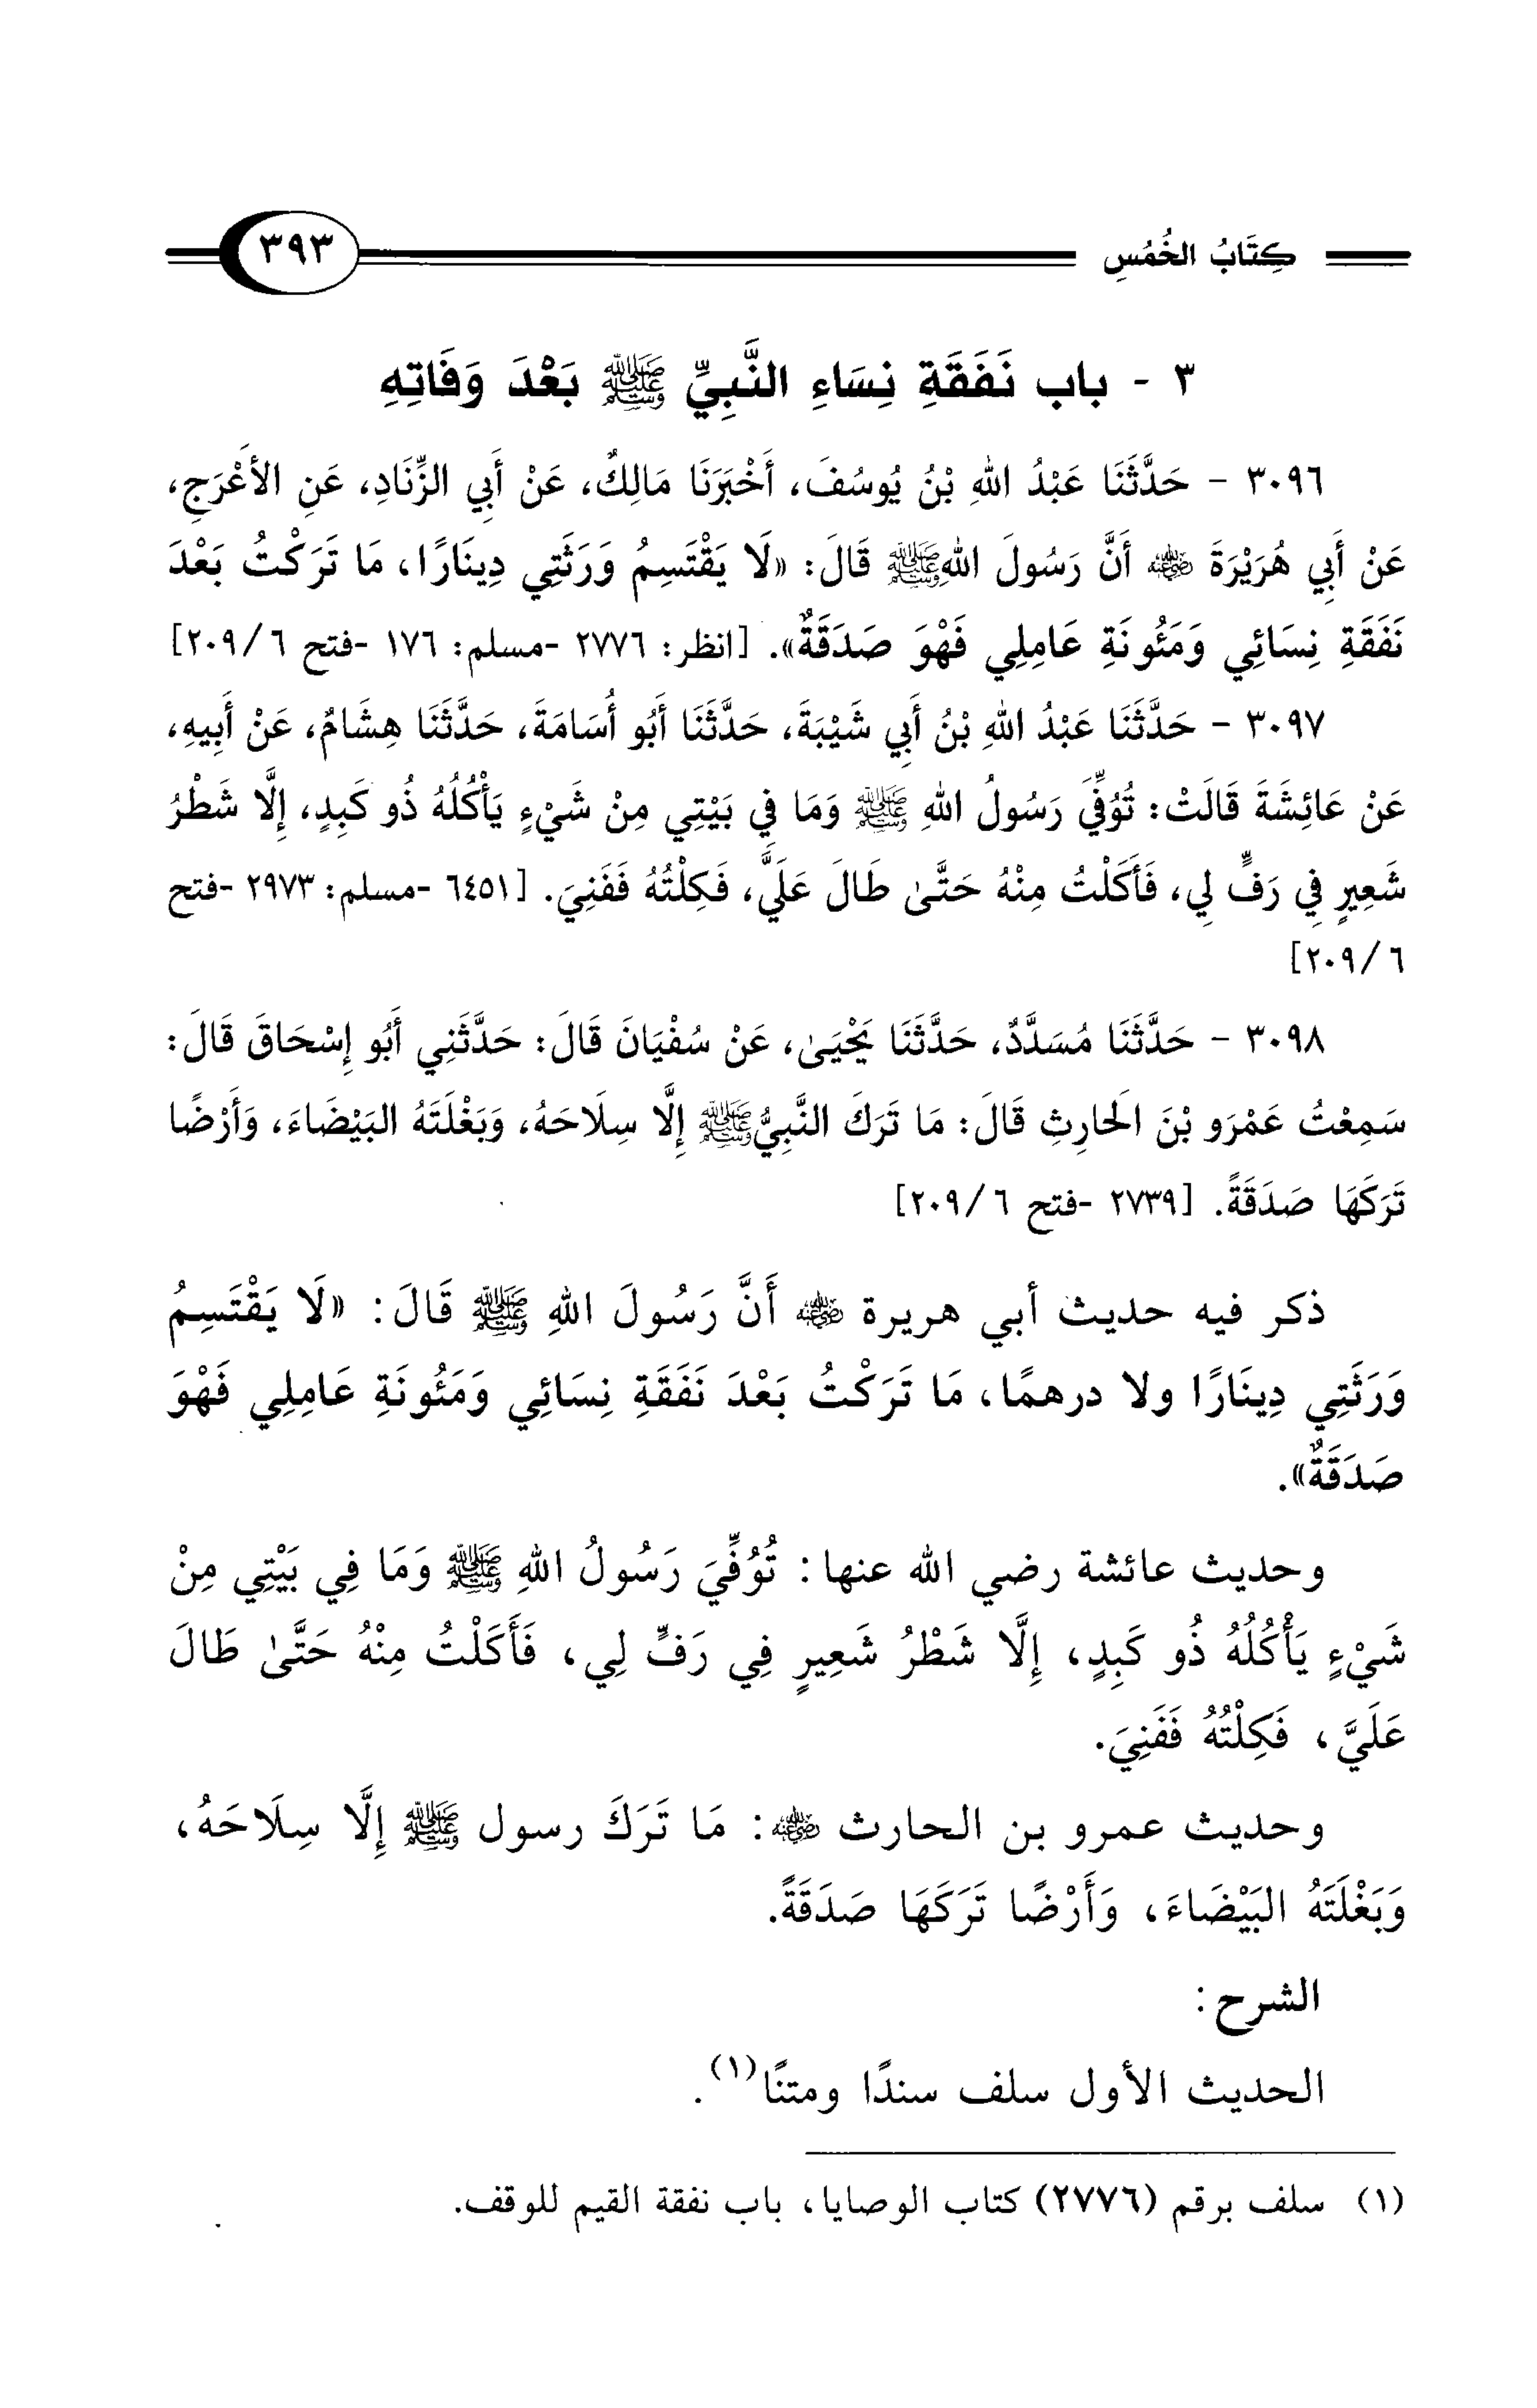 كِتَابُ الخُمُسِ ٣٩٣
٣ - باب نَفَقَةِ نِسَاءِ النَّبِيِّ ﷺ بَعْدَ وَفَاتِهِ
٣٠٩٦ - حَدَّثَنَا عَبْدُ اللهِ بْنُ يُوسُفَ، أَخْبَرَنَا مَالِكٌ، عَنْ أَبِي الزِّنَادِ، عَنِ الأَعْرَجِ،
عَنْ أَبِي هُرَيْرَةَ رضي الله عنه أَنَّ رَسُولَ اللهِ ﷺ قَالَ: «لَا يَقْتَسِمُ وَرَثَتِي دِينَارًا، مَا تَرَكْتُ بَعْدَ
نَفَقَةِ نِسَائِي وَمَئُونَةِ عَامِلِي فَهْوَ صَدَقَةٌ». [انظر: ٢٧٧٦ -مسلم: ١٧٦ -فتح ٦/ ٢٠٩]
٣٠٩٧ - حَدَّثَنَا عَبْدُ اللهِ بْنُ أَبِي شَيْبَةَ، حَدَّثَنَا أَبُو أُسَامَةَ، حَدَّثَنَا هِشَامٌ، عَنْ أَبِيهِ،
عَنْ عَائِشَةَ قَالَتْ: تُوُفِّيَ رَسُولُ اللهِ ﷺ وَمَا فِي بَيْتِي مِنْ شَيْءٍ يَأْكُلُهُ ذُو كَبِدٍ، إِلَّا شَطْرُ
شَعِيرٍ فِي رَفٍّ لِي، فَأَكَلْتُ مِنْهُ حَتَّىٰ طَالَ عَلَيَّ، فَكِلْتُهُ فَفَنِيَ. [٦٤٥١ -مسلم: ٢٩٧٣ -فتح
٦/ ٢٠٩]
٣٠٩٨ - حَدَّثَنَا مُسَدَّدٌ، حَدَّثَنَا يَحْيَىٰ، عَنْ سُفْيَانَ قَالَ: حَدَّثَنِي أَبُو إِسْحَاقَ قَالَ:
سَمِعْتُ عَمْرَو بْنَ الَحارِثِ قَالَ: مَا تَرَكَ النَّبِيُّ ﷺ إِلَّا سِلَاحَهُ، وَبَغْلَتَهُ البَيْضَاءَ، وَأَرْضًا
تَرَكَهَا صَدَقَةً. [٢٧٣٩ -فتح ٦/ ٢٠٩]
ذكر فيه حديث أبي هريرة رضي الله عنه أَنَّ رَسُولَ اللهِ ﷺ قَالَ: «لَا يَقْتَسِمُ
وَرَثَتِي دِينَارًا ولا درهمًا، مَا تَرَكْتُ بَعْدَ نَفَقَةِ نِسَائِي وَمَئُونَةِ عَامِلِي فَهْوَ
صَدَقَةٌ».
وحديث عائشة رضي الله عنها: تُوُفِّيَ رَسُولُ اللهِ ﷺ وَمَا فِي بَيْتِي مِنْ
شَيْءٍ يَأْكُلُهُ ذُو كَبِدٍ، إِلَّا شَطْرُ شَعِيرٍ فِي رَفٍّ لِي، فَأَكَلْتُ مِنْهُ حَتَّىٰ طَالَ
عَلَيَّ، فَكِلْتُهُ فَفَنِيَ.
وحديث عمرو بن الحارث رضي الله عنه: مَا تَرَكَ رسول ﷺ إِلَّا سِلَاحَهُ،
وَبَغْلَتَهُ البَيْضَاءَ، وَأَرْضًا تَرَكَهَا صَدَقَةً.
الشرح:
الحديث الأول سلف سندًا ومتنًا(١).
(١) سلف برقم (٢٧٧٦) كتاب الوصايا، باب نفقة القيم للوقف.